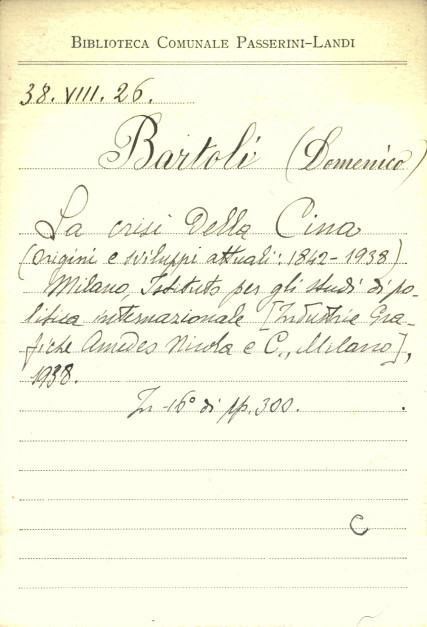 BIBLIOTECA COMUNALE PASSERINI-LANDI
38. VIII. 26.
Bartoli (Domenico)
La crisi della Cina
(origini e sviluppi attuali: 1842-1938)
Milano, Istituto per gli studi di po-
litica internazionale [Industrie Gra-
fiche Amedeo Nicola e C., Milano],
1938.
In-16° di pp. 300.
C